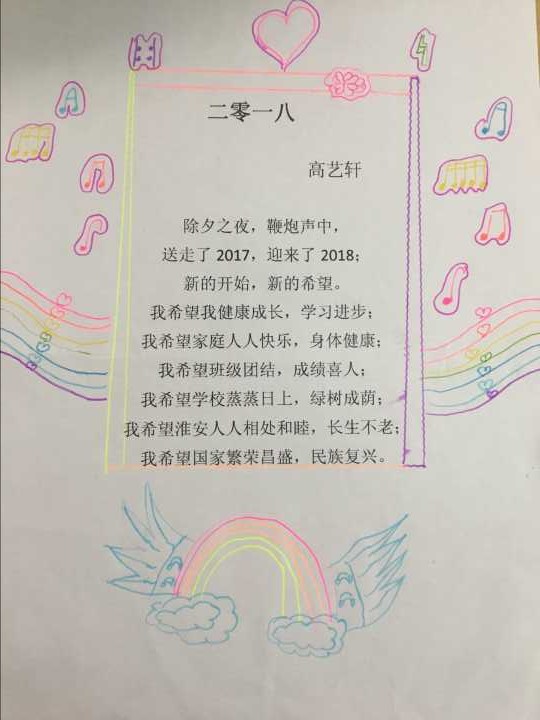 二零一八
高艺轩
除夕之夜，鞭炮声中，
送走了 2017，迎来了 2018；
新的开始，新的希望。
我希望我健康成长，学习进步；
我希望家庭人人快乐，身体健康；
我希望班级团结，成绩喜人；
我希望学校蒸蒸日上，绿树成荫；
我希望淮安人人相处和睦，长生不老；
我希望国家繁荣昌盛，民族复兴。